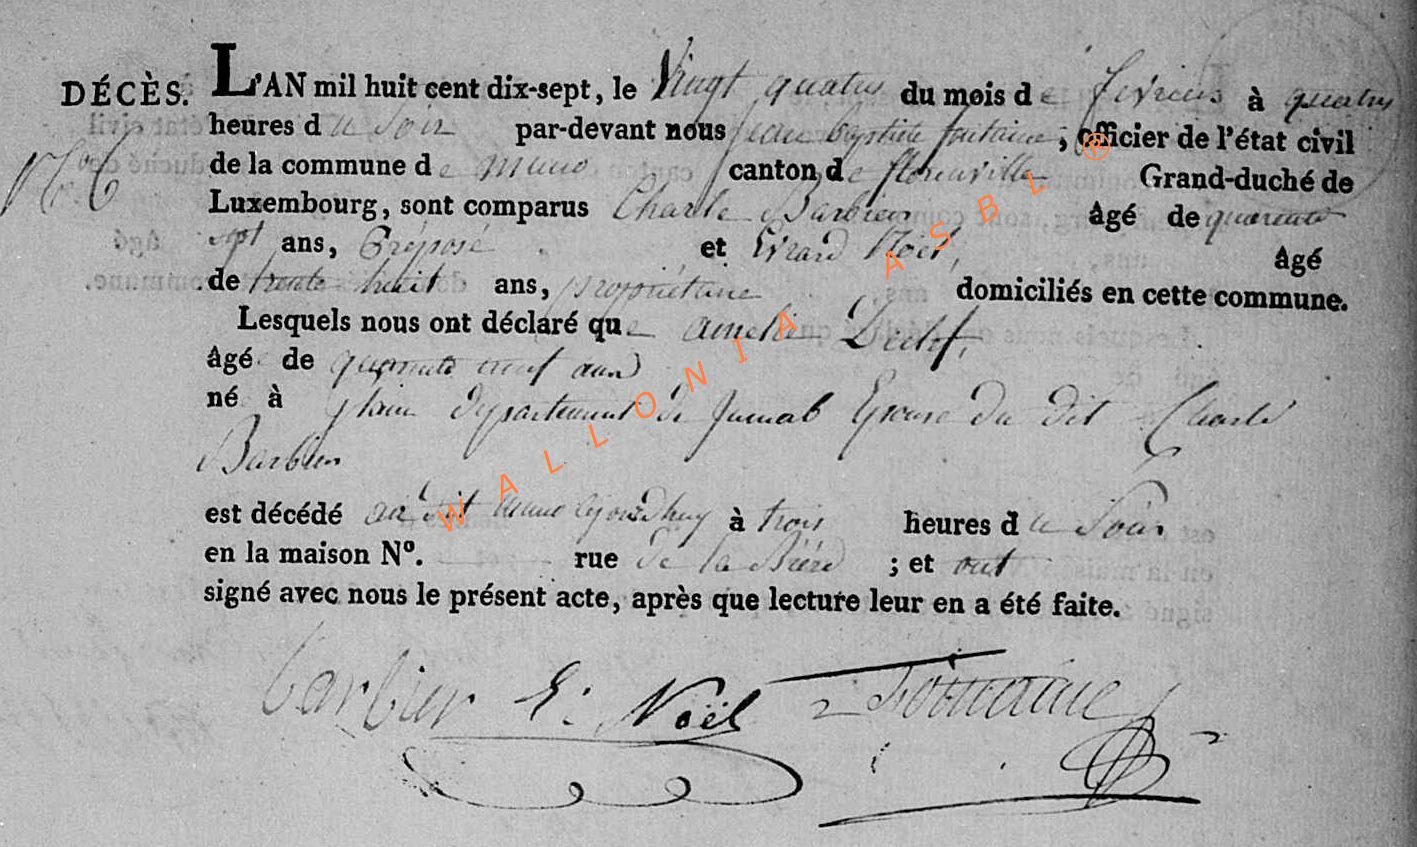 DÉCÈS. L'AN mil huit cent dix-sept, le Vingt quatre du mois de fevrier à quatre
heures du soir par-devant nous jean baptiste fontaine, officier de l'état civil
No. 6 de la commune de muno canton de florenville Grand-duché de
Luxembourg, sont comparus Charle Barbieur âgé de quarente
sept ans, Préposé et Evrard Noël, âgé
de trente huit ans, propriétaire domiciliés en cette commune.
Lesquels nous ont déclaré que amelie
âgé de quarente neuf ans
né à departement de Jumab Epouse du dit Charle
Barbieur
est décédé au dit muno à trois heures du Soir
en la maison No. rue de la ; et ont
signé avec nous le présent acte, après que lecture leur en a été faite.
barbieur E: Noël Fontaine
WALLONIA ASBL ®